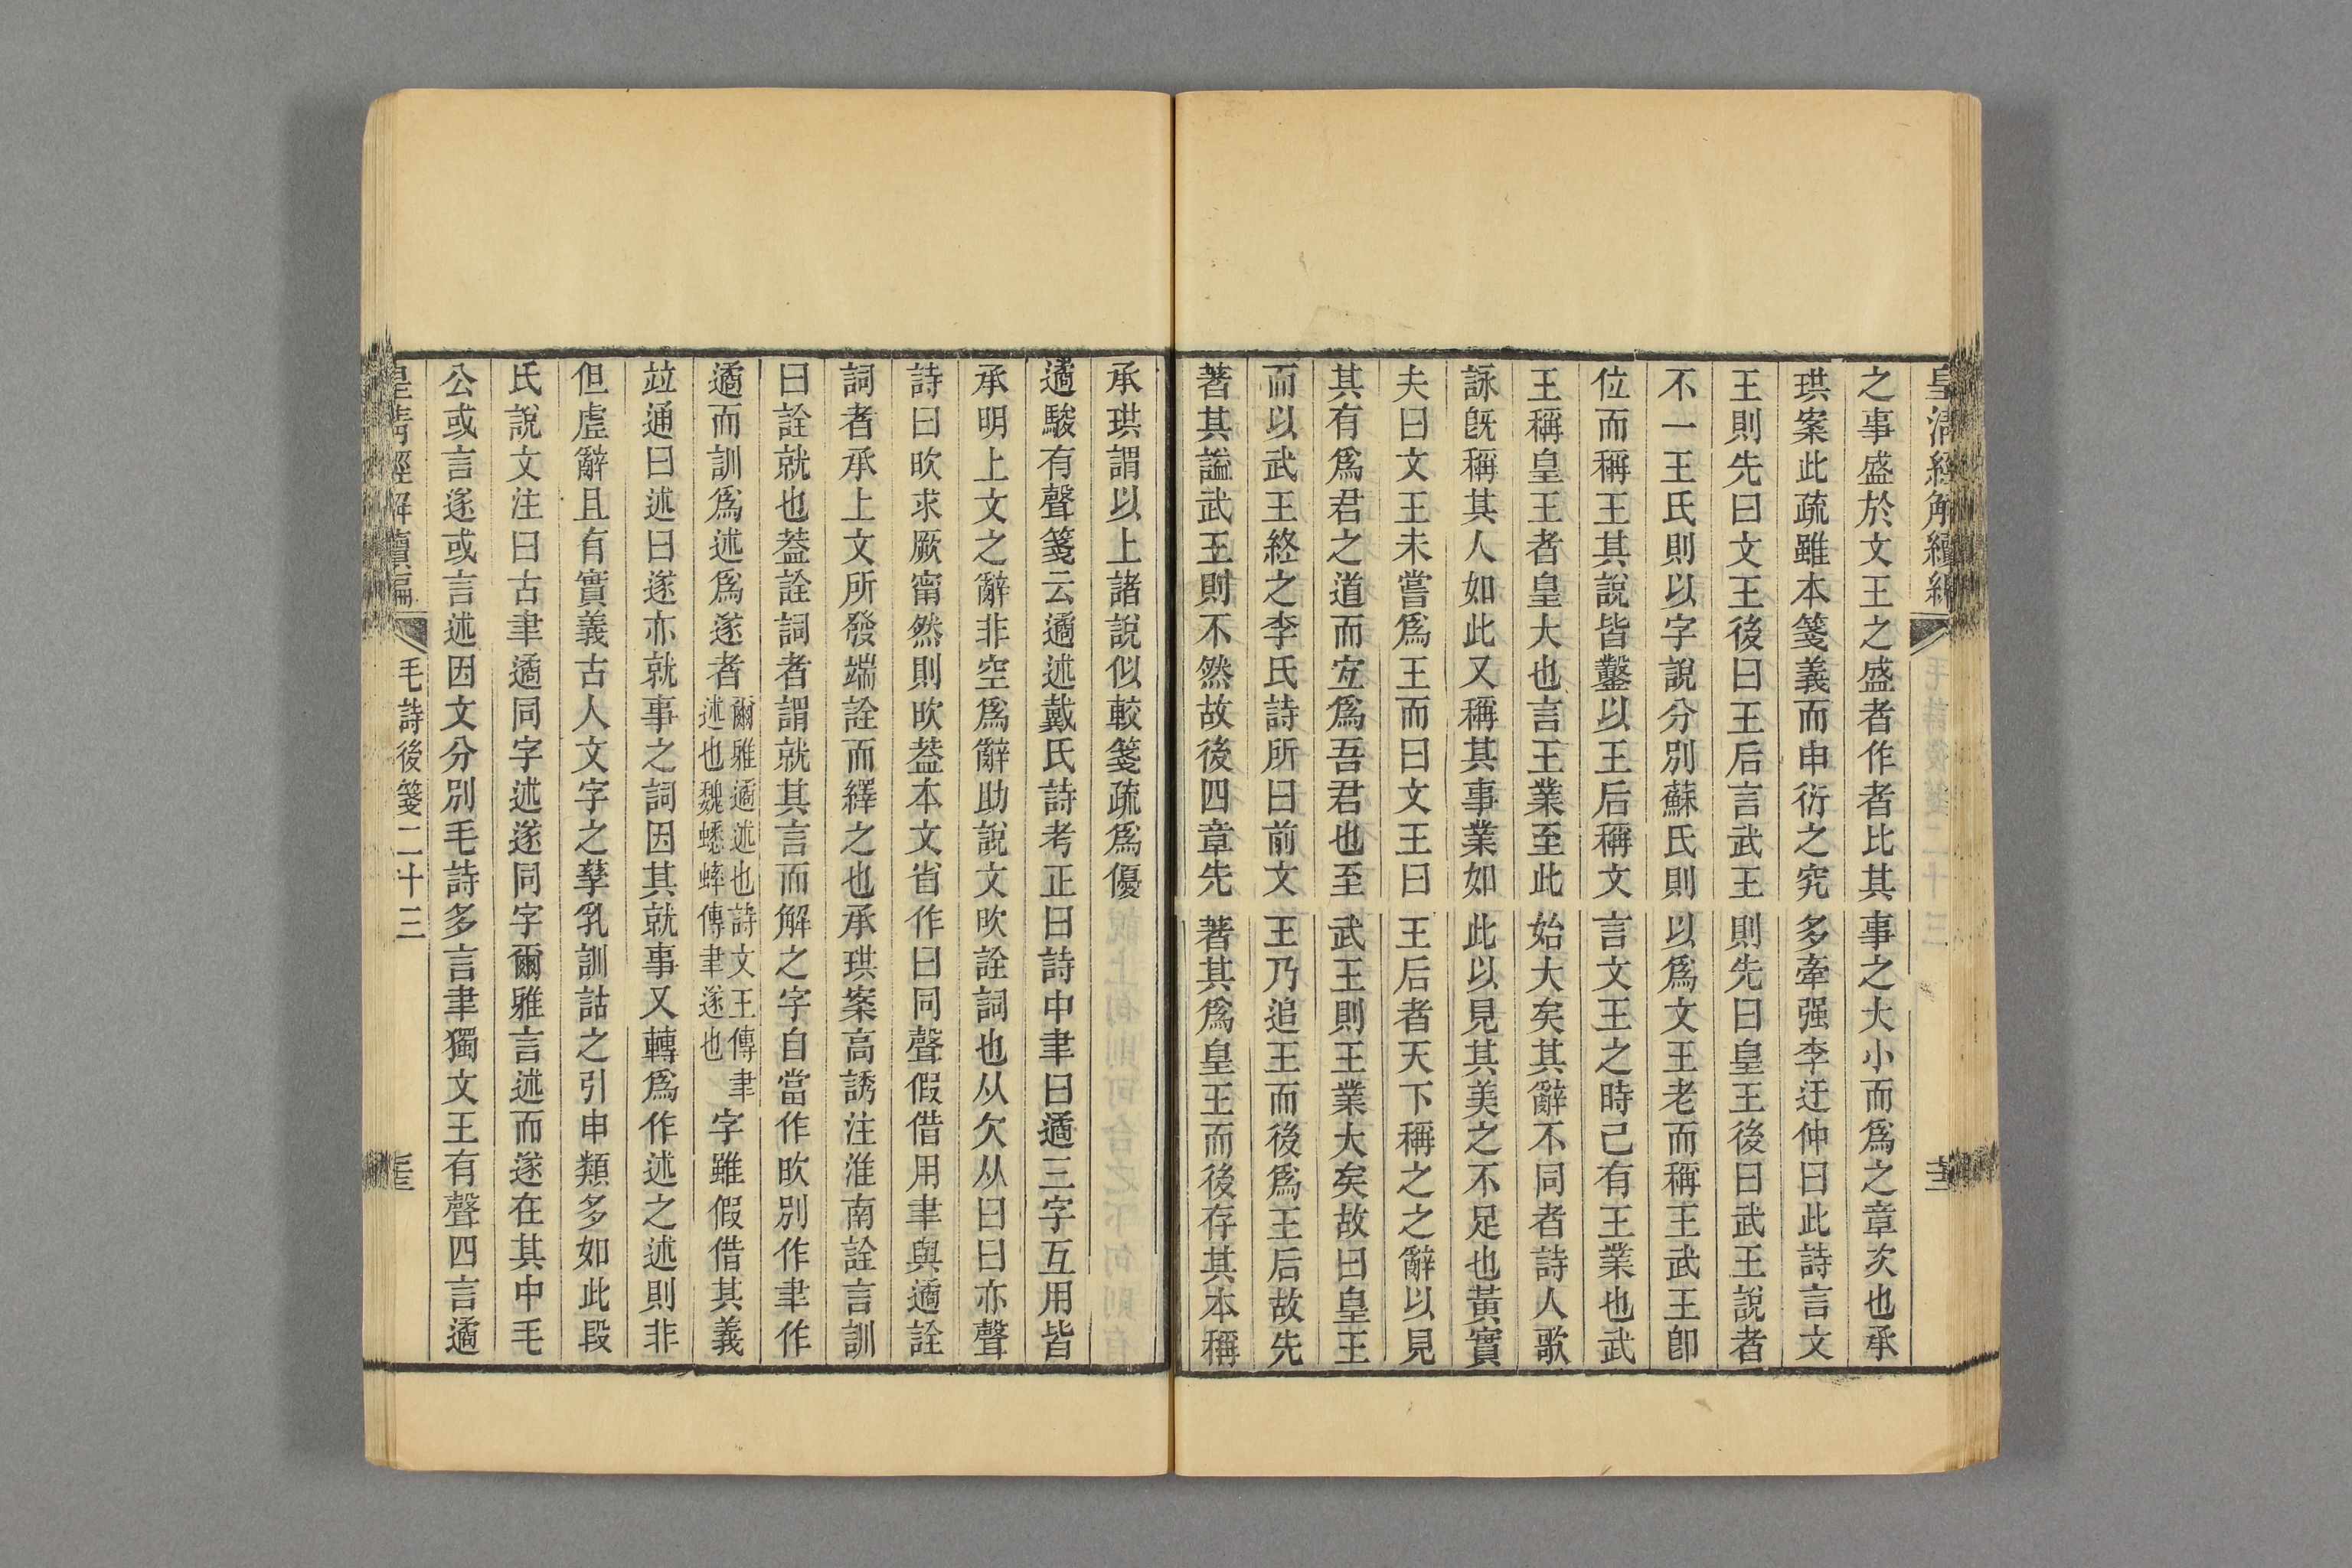 皇清經解續編
之事盛於文王之盛者作者比其事之大小而爲之章次也承
珙案此疏雖本箋義而申衍之究多牽强李迂仲曰此詩言文
王則先曰文王後曰王后言武王則先曰皇王後曰武王說者
不一王氏則以字說分別蘇氏則以爲文王老而稱王武王卽
位而稱王其說皆鑿以王后稱文言文王之時己有王業也武
王稱皇王者皇大也言王業至此始大矣其辭不同者詩人歌
詠旣稱其人如此又稱其事業如此以見其美之不足也黃實
夫曰文王未嘗爲王而曰文王曰王后者天下稱之之辭以見
其有爲君之道而宐爲吾君也至武王則王業大矣故曰皇王
而以武王終之李氏詩所曰前文王乃追王而後爲王后故先
著其謚武王則不然故後四章先著其爲皇王而後存其本稱
承珙謂以上諸說似較箋疏爲優
遹駿有聲箋云遹述戴氏詩考正曰詩中聿曰遹三字互用皆
承明上文之辭非空爲辭助說文欥詮詞也从欠从曰曰亦聲
詩曰欥求厥甯然則欥葢本文省作曰同聲假借用聿與遹詮
詞者承上文所發端詮而繹之也承珙案高誘注淮南詮言訓
曰詮就也葢詮詞者謂就其言而解之字自當作欥別作聿作
遹而訓爲述爲遂者爾雅遹述也詩文王傳聿述也魏蟋蟀傳聿遂也字雖假借其義
竝通曰述曰遂亦就事之詞因其就事又轉爲作述之述則非
但虛辭且有實義古人文字之孳乳訓詁之引申類多如此段
氏說文注曰古聿遹同字述遂同字爾雅言述而遂在其中毛
公或言遂或言述因文分別毛詩多言聿獨文王有聲四言遹
皇淸經解續編 毛詩後箋二十三